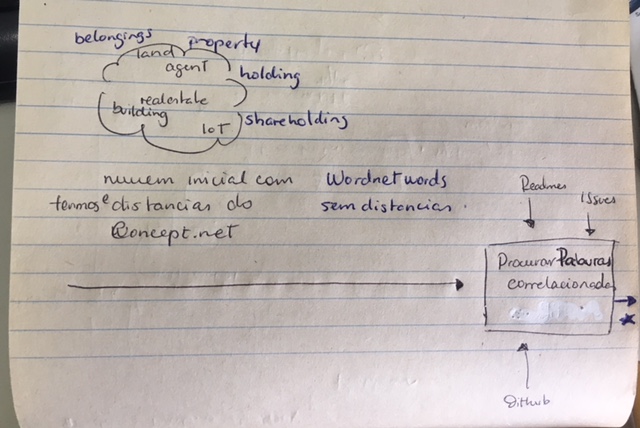 belongings
property
land
agent
holding
realestate
building
IoT
shareholding
nuvem inicial com
termos e distancias do
Concept.net
Wordnet words
sem distancias.
Readmes
Issues
Procurar Palavras
correlacionadas
Github